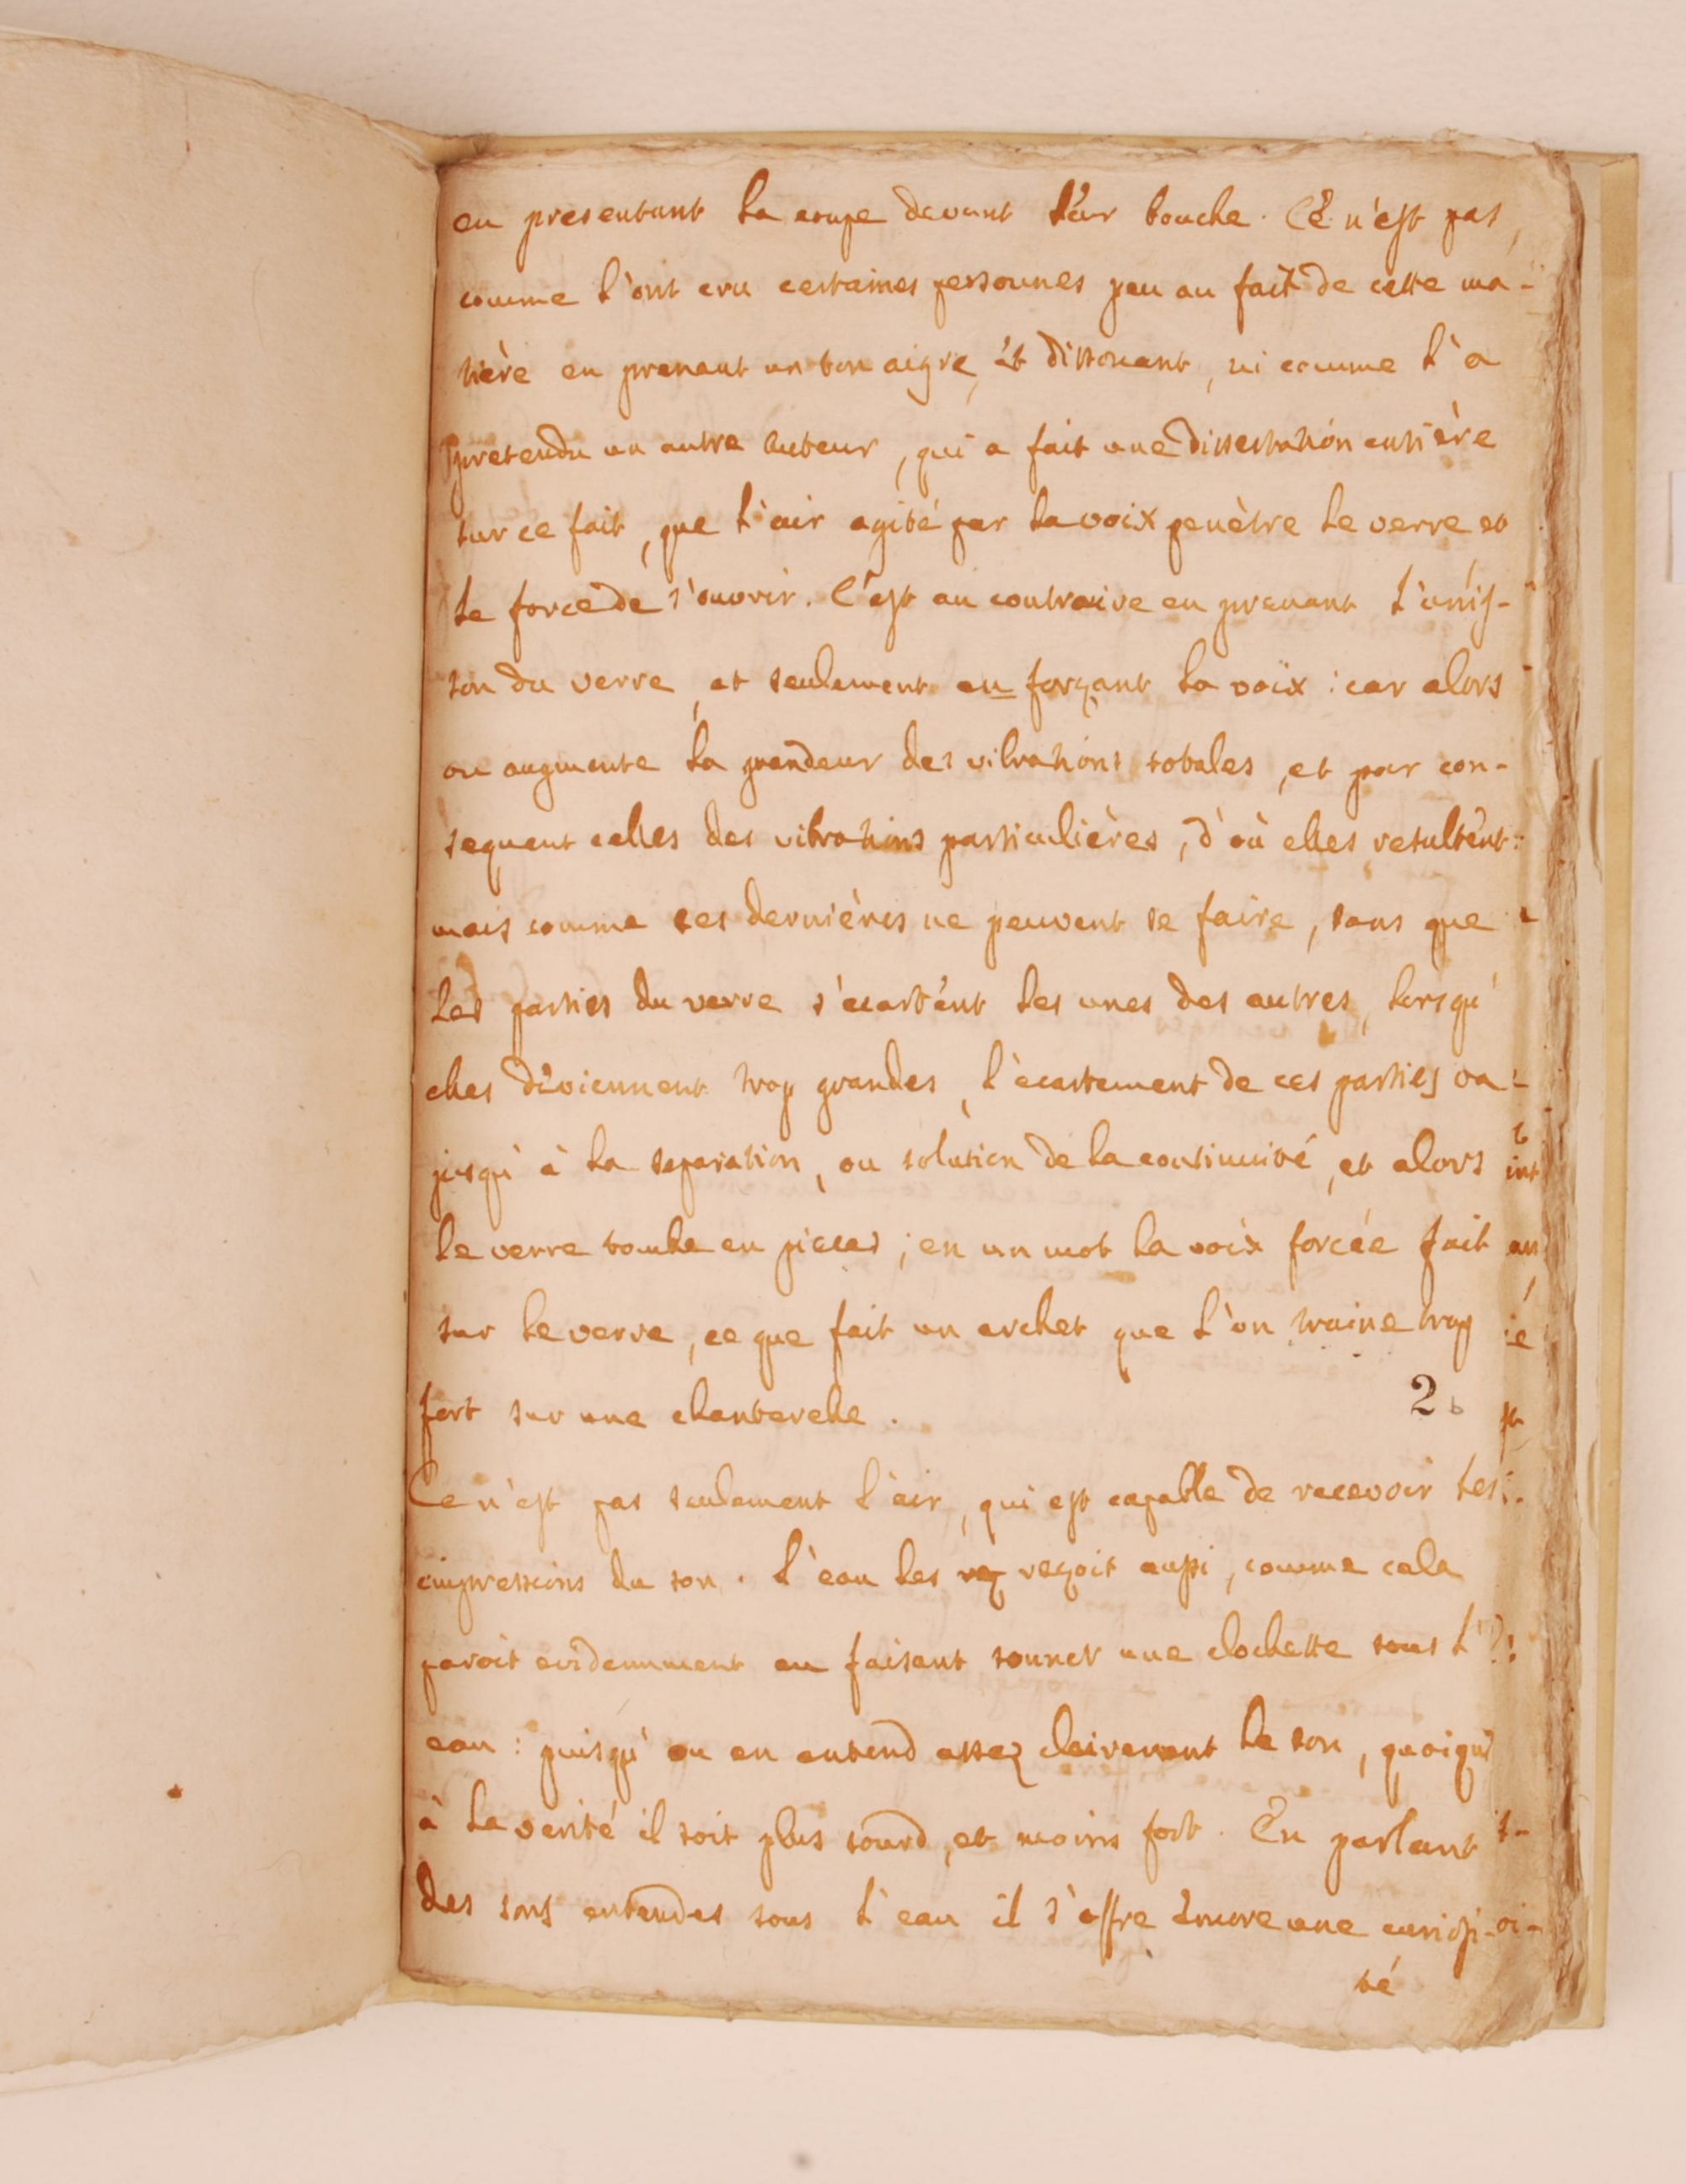 en presentant la coupe devant leur bouche. Ce n'est pas,
comme l'ont cru certaines personnes peu au fait de cette ma-
tière en prenant un ton aigre, et dissonant, ni comme l'a
pretendu un autre auteur, qui a fait une dissertation entière
sur ce fait, que l'air agité par la voix penètre le verre et
le force de s'ouvrir. C'est au contraire en prenant l'unis-
son du verre, et seulement en forçant la voix: car alors
on augmente la grandeur des vibrations totales, et par con-
sequent celles des vibrations particulières, d'où elles resultent:
mais comme ces dernières ne peuvent se faire, sans que
les parties du verre s'ecartent les unes des autres, lorsqu'
elles deviennent trop grandes, l'ecartement de ces parties va
jusqu'à la separation, ou solution de la continuité, et alors
le verre tombe en pieces; en un mot la voix forcée fait
sur le verre, ce que fait un archet que l'on traine trop
fort sur une chanterelle.
2 b
Ce n'est pas seulement l'air, qui est capable de recevoir les
impressions du son. L'eau les reç reçoit aussi, comme cela
paroit evidemment en faisant sonner une clochette sous l'
eau: puisqu'on en entend assez clairement le son, quoiqu'
à la verité il soit plus sourd, et moins fort. En parlant
des sons entendus sous l'eau il s'offre encore une curiosi-
té